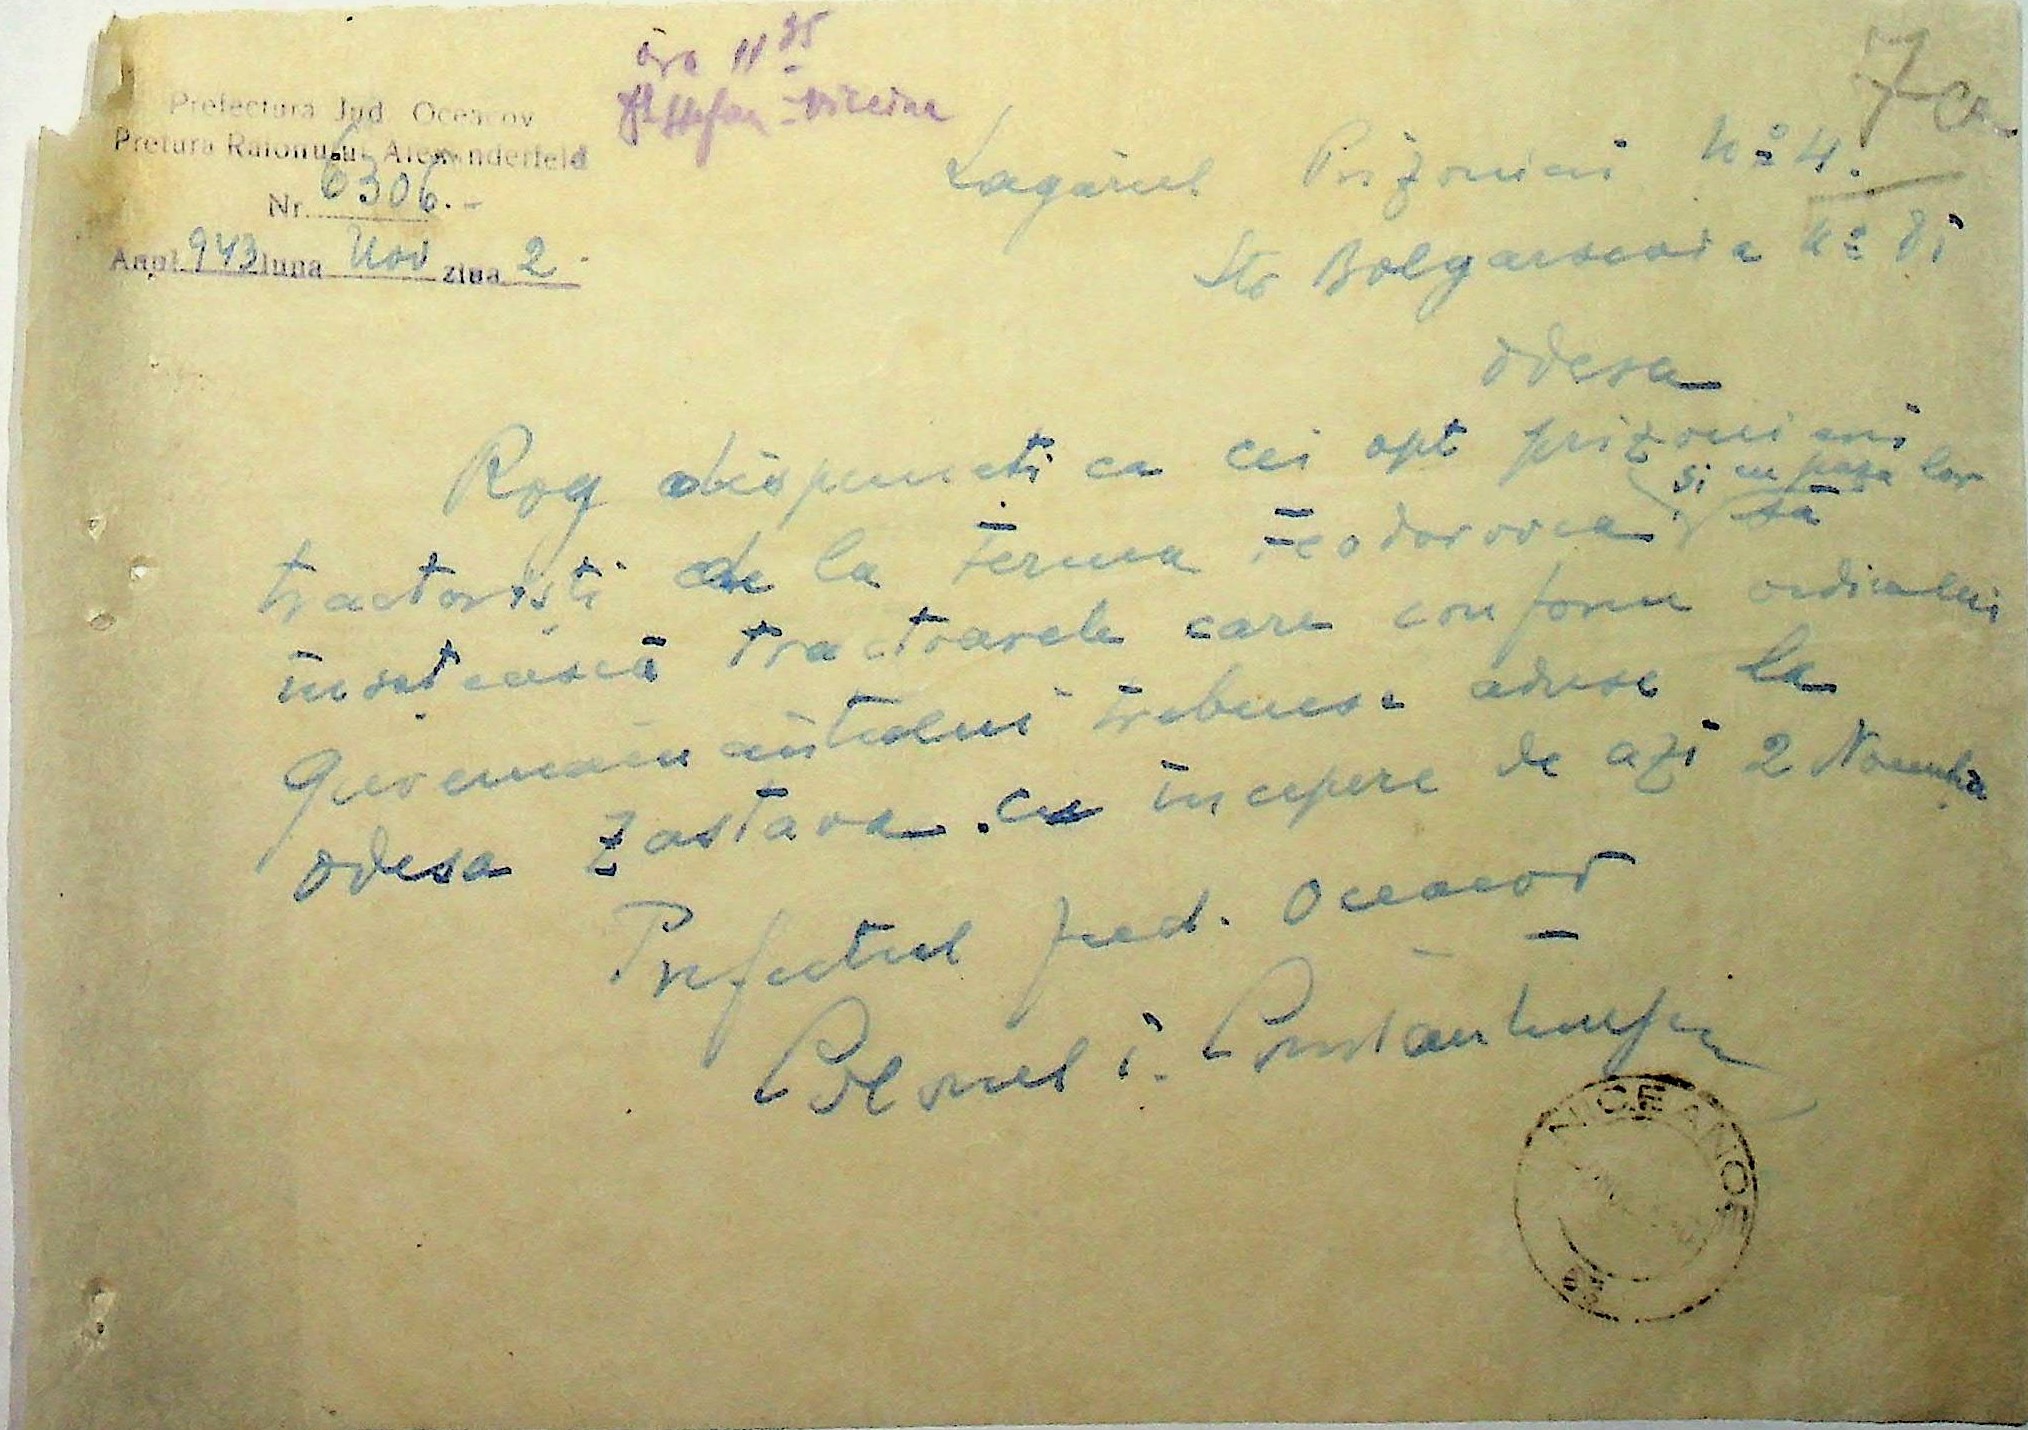 ora 11 35
Prefectura Jud. Oceacov
Pretura Raionului Alexanderfeld
Nr. 6306.-
Anul 943 luna Nov ziua 2
Lagărul Prizonieri No 4.
Str Bolgarscaia No
Odesa
Rog dispuneti ca cei opt prizonieri
si cu paza lor
tractoriști de la Ferma Feodorovca să
însoțească tractoarele care conform ordinului
Guvernământului trebuesc aduse la
Odesa Zastava. cu începere de azi 2 Noembrie
Prefectul Jud. Oceacov
Colonel i.